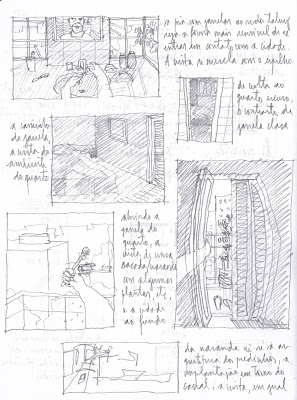 a pia com janelas ao redor talvez
seja a forma mais sensível de se
entrar em contato com a cidade.
A vista se mescla com o espelho
de volta ao
quarto escuro,
o contraste da
janela clara
a caminho
da janela
a vista do
ambiente
do quarto
abrindo a
janela do
quarto, a
vista de uma
sacada/varanda
com algumas
plantas, etc,
e a cidade
ao fundo
da varanda vê-se a ar-
quitetura do prédio, a
implantação em torno do
canal, a vista, em geral